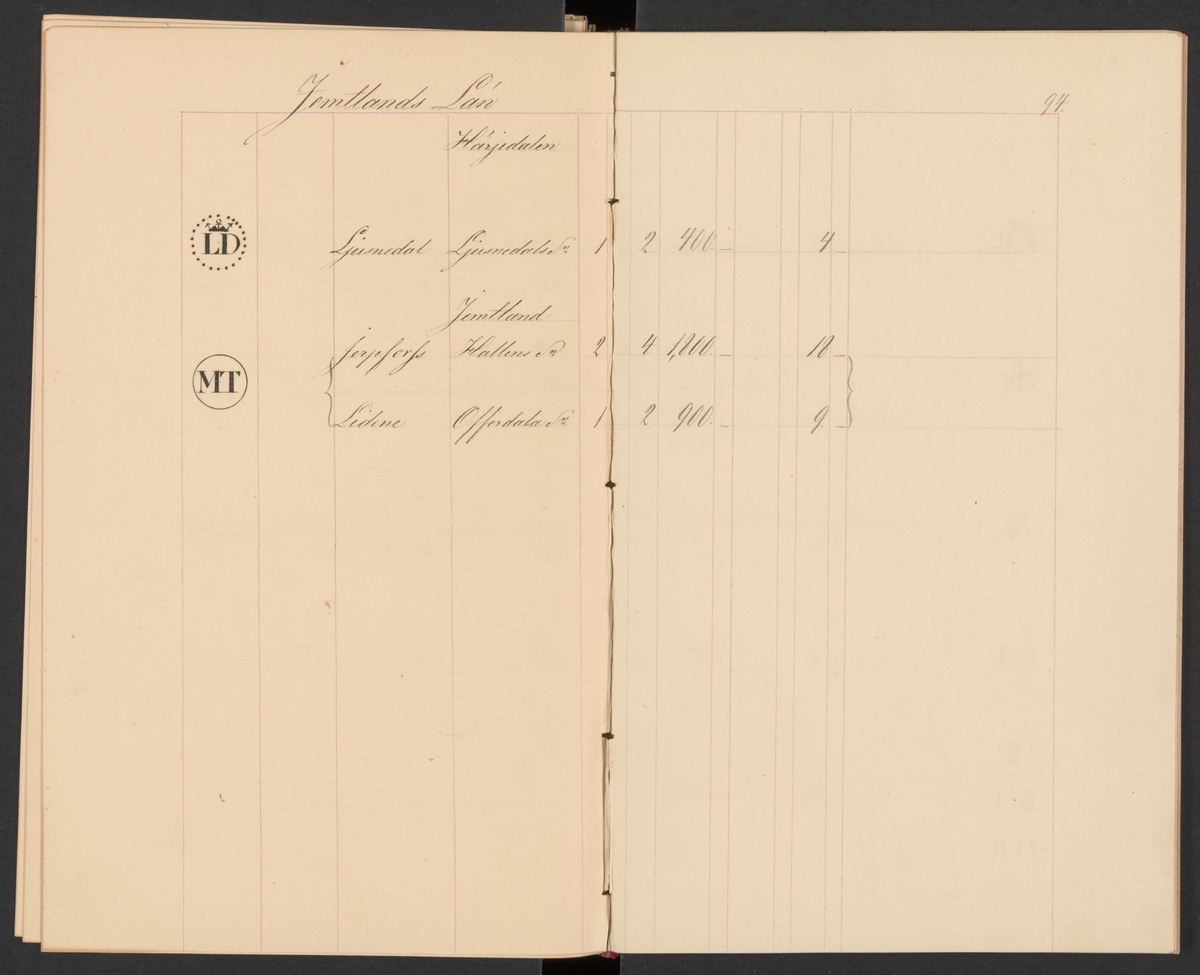 Jemtlands Län
94.
Härjedalen
LD Ljusnedal Ljusnedals Sn 1 2 400. — 4 —
Jemtland
Jerpforss Hallens Sn 2 4 1,800. — 18 —
MT
Lidene Offerdals Sn 1 2 900. — 9 —